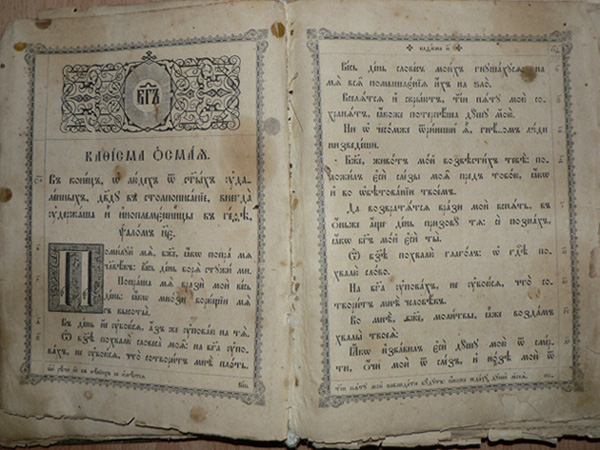 БГЪ
КАѲІСМА Ѻ҆СМАѦ.
Въ коне́цъ, ѡ҆ люде́хъ ѿ ст҃ы́хъ ᲂу҆да-
ле́нныхъ, дв҃ду въ столпописа́нїе, внегда̀
ᲂу҆держа́ша и҆̀ и҆ноплеме́нницы въ ге́ѳѣ,
ѱало́мъ н҃е.
Поми́лꙋй мѧ̀, бж҃е, ꙗ҆́кѡ попра̀ мѧ
человѣ́къ: ве́сь де́нь борѧ̀ стꙋжи́ ми.
Попра́ша мѧ̀ вразѝ моѝ ве́сь
де́нь: ꙗ҆́кѡ мно́зи борю́щїи мѧ̀
съ высоты̀.
Въ де́нь не ᲂу҆бою́сѧ, а҆́зъ же ᲂу҆пова́ю на тѧ̀.
Ѡ҆ бз҃ѣ похвалю̀ словеса̀ моѧ̑: на бг҃а ᲂу҆по-
ва́хъ, не ᲂу҆бою́сѧ, что̀ сотвори́тъ мнѣ̀ пло́ть.
каѳі́сма и҃
Ве́сь де́нь слове́съ мои́хъ гнꙋша́хꙋсѧ: на
мѧ̀ всѧ̑ помышлє́нїѧ и҆́хъ на ѕло̀.
Вселѧ́тсѧ и҆ скры́ютъ, ті́и пѧ́тꙋ мою̀ со-
хранѧ́тъ, ꙗ҆́коже потерпѣ́ша дꙋ́шꙋ мою̀.
Ни ѡ҆ чесо́мже ѿри́неши ѧ҆̀, гнѣ́вомъ лю́ди
низведе́ши.
Бж҃е, живо́тъ мо́й возвѣсти́хъ тебѣ̀: по-
ложи́лъ є҆сѝ сле́зы моѧ̑ пред̾ тобо́ю, ꙗ҆́кѡ
и҆ во ѡ҆бѣтова́нїи твое́мъ.
Да возвратѧ́тсѧ вразѝ моѝ вспѧ́ть, въ
ѻ҆́ньже а҆́ще де́нь призовꙋ́ тѧ: сѐ позна́хъ,
ꙗ҆́кѡ бг҃ъ мо́й є҆сѝ ты̀.
Ѡ҆ бз҃ѣ похвалю̀ глаго́лъ: ѡ҆ гдⷭ҇ѣ по-
хвалю̀ сло́во.
На бг҃а ᲂу҆пова́хъ, не ᲂу҆бою́сѧ, что̀ со-
твори́тъ мнѣ̀ человѣ́къ.
Во мнѣ̀, бж҃е, моли̑твы, ꙗ҆̀же возда́мъ
хвалы̀ твоеѧ̀:
Ꙗ҆́кѡ и҆зба́вилъ є҆сѝ дꙋ́шꙋ мою̀ ѿ сме́р-
ти, ѻ҆́чи моѝ ѿ сле́зъ, и҆ но́зѣ моѝ ѿ